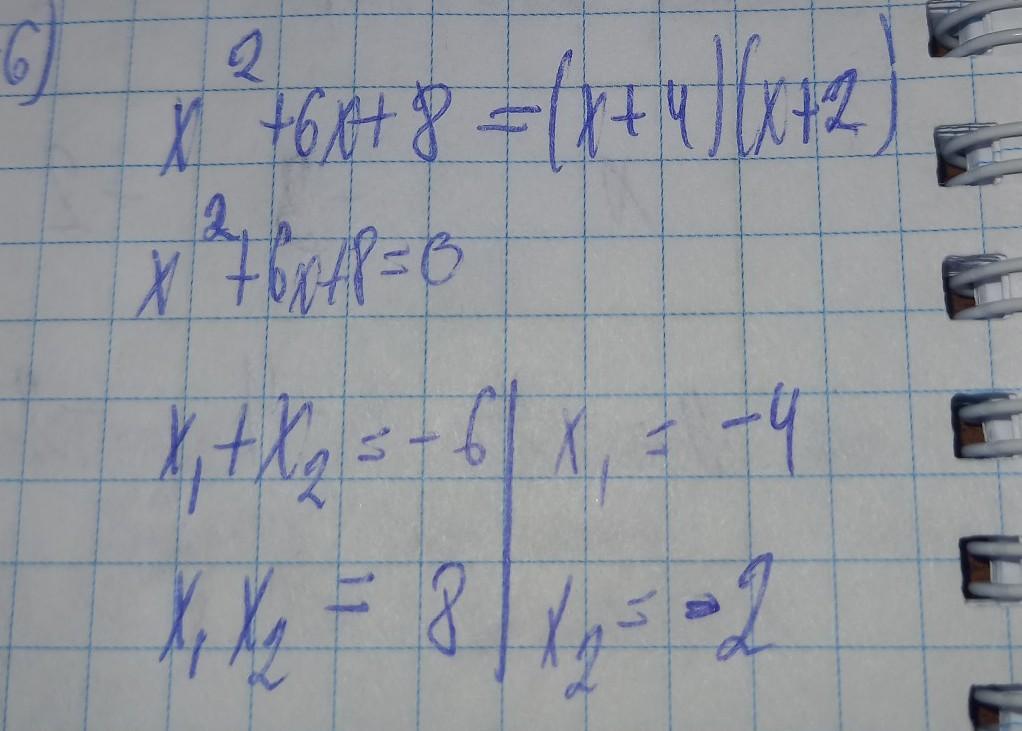 б) x² + 6x + 8 = (x + 4)(x + 2)
x² + 6x + 8 = 0
x₁ + x₂ = -6 | x₁ = -4
x₁ x₂ = 8 | x₂ = -2